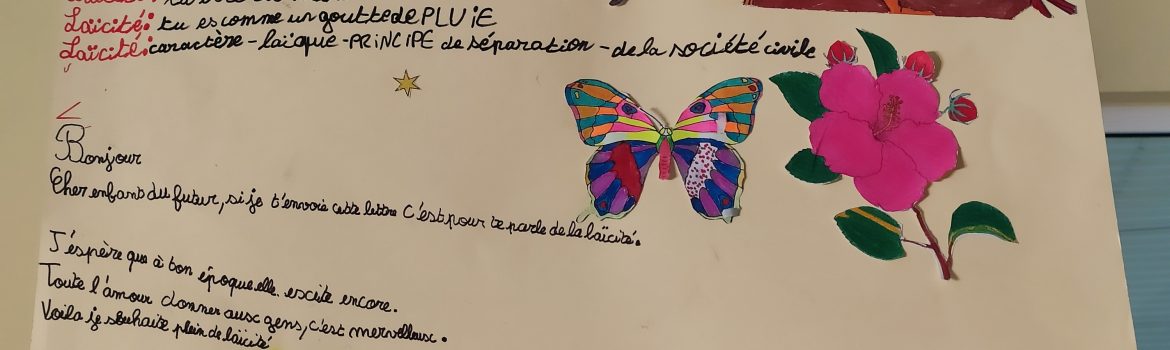 Laïcité: tu es comme un goutte de PLUiE
Laïcité: caractère - laïque - PRiNCiPE de séparation - de la société civile
Bonjour
Cher enfant du futur, si je t'envoie cette lettre c'est pour te parle de la laïcité.
J'espère que à ton époque elle escite encore.
Toute l'amour donner aux gens, c'est merveilleux.
Voila je souhaite plein de laïcité